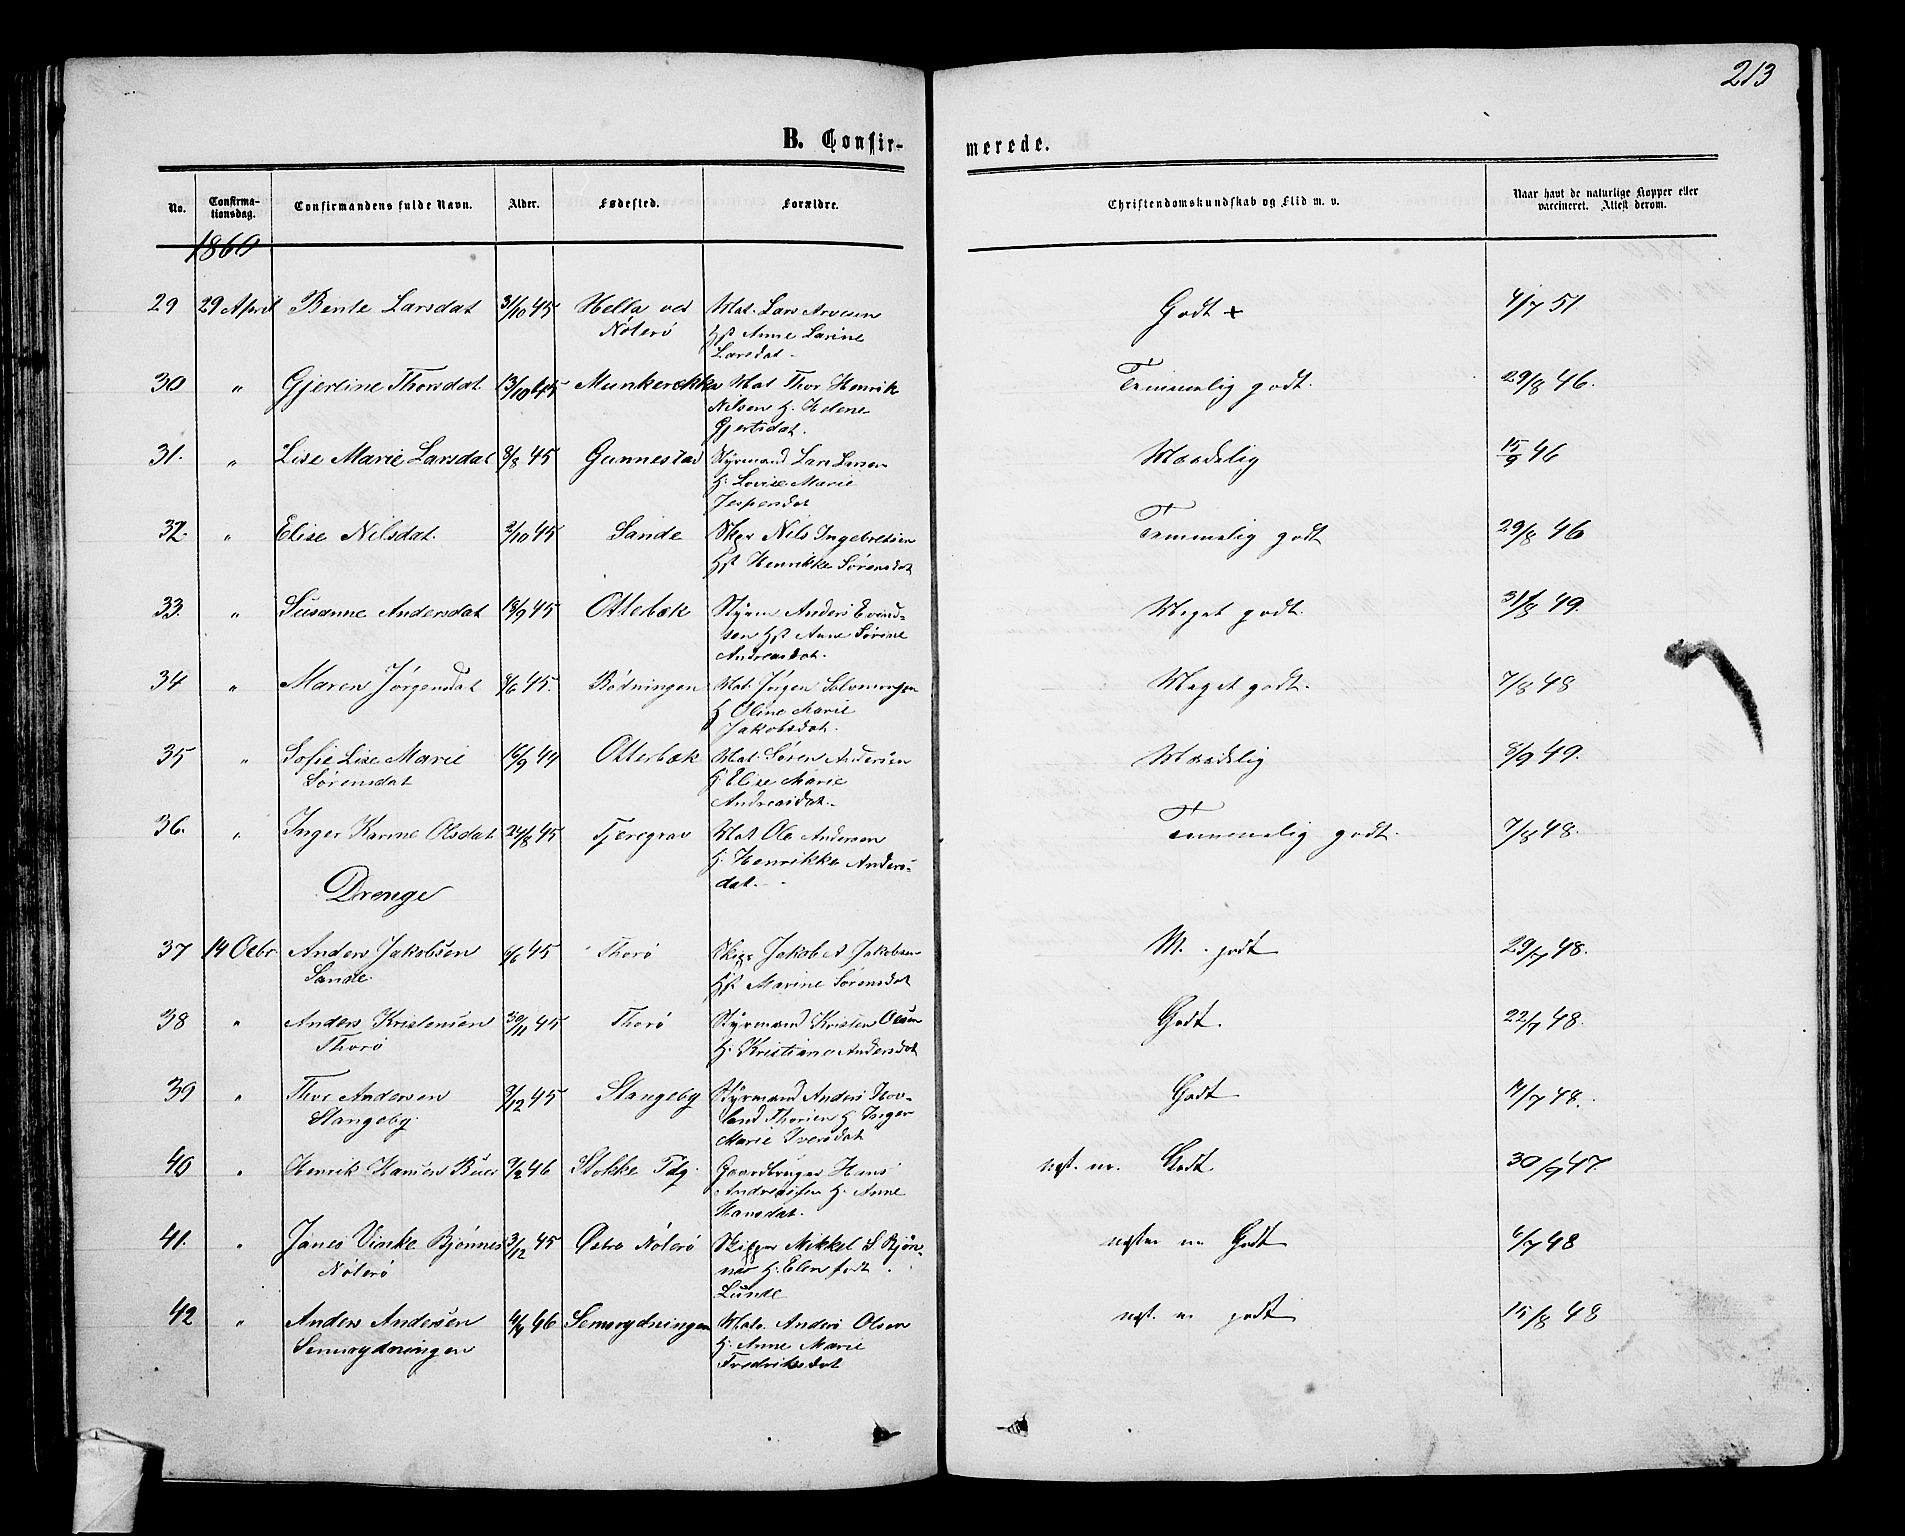 213
B. Confirmerede.
No. Confirmationsdag. Confirmandens fulde Navn. Alder. Fødested. Forældre. Christendomskundskab og Flid m. v. Naar havt de naturlige Kopper eller vaccineret. Attest derom.
1860
29 29 April Bente Larsdat 3/10 45 Hella ved Mat. Lars Arvesen Godt + 4/7 51.
Nøterø Hst Anne Larine
Larsdat.
30 " Gjertine Thorsdat. 13/10 45 Munkerekka Mat Thor Henrik Temmelig godt. 29/8 46.
Nilsen H. Helene
Gjertsdat.
31. " Lise Marie Larsdat 8/8 45 Gunnestad Styrmand Lars Maadelig 15/9 46
H. Lovise Marie
Jespersdat
32. " Elise Nilsdat. 2/10 45 Sande Nils Ingebretsen Temmelig godt 29/8 46
Hst Henrikke Sørensdat
33. " Susanne Andersdat 18/9 45 Ottebæk Styrm Anders Evind- Meget godt. 31/8 49.
sen Hst Anne Sørine
Andreasdat.
34 " Maren Jørgensdat 8/6 45. Rødningen Mat. Jørgen Salomonsen Meget godt. 7/8 48
H Oline Marie
Jakobsdat.
35 " Sofie Lise Marie 16/9 44 Otterbæk Mat. Søren Andersen Maadelig 8/9 49.
Sørensdat H. Elise Marie
Andreasdat.
36. " Inger Karine Olsdat 24/8 45 Tjeregrav Mat Ole Andersen Temmelig godt. 7/8 48.
H. Henrikke Anders-
dat.
Drenge
37 14 Octbr Anders Jakobsen 6/6 45 Thorø Skipr Jakob A Jakobsen M. godt 29/7 48.
Sande. Hst Marine Sørensdat
38 " Anders Kristensen 30/11 45 Thorø Styrmand Kristen Olsen Godt. 22/7 48.
Thorø H. Kristiane Andersdat
39 " Thor Andersen 9/12 45 Stangeby Styrmand Anders Hov- Godt 11/7 48.
Stangeby. land Thorsen H Inger
Marie Iversdat
40 " Henrik Hansen Buer 9/2 46 Stokke Pdg. Gaardbruger Hans næst. m. Godt 30/9 47.
Andreassen H. Anne
Hansdat.
41. " Janes Vinke Bjønnes 3/12 45 Østre Nøterø Skipper Mikkel S Bjøn- næsten m Godt 6/7 48
Nøterø nes H. Elen født
Lunde
42 " Anders Andersen 4/4 46 Semsrydningen Matr. Anders Olsen næst. m godt 15/8 48
Semsrydningen H. Anne Marie
Fredriksdat